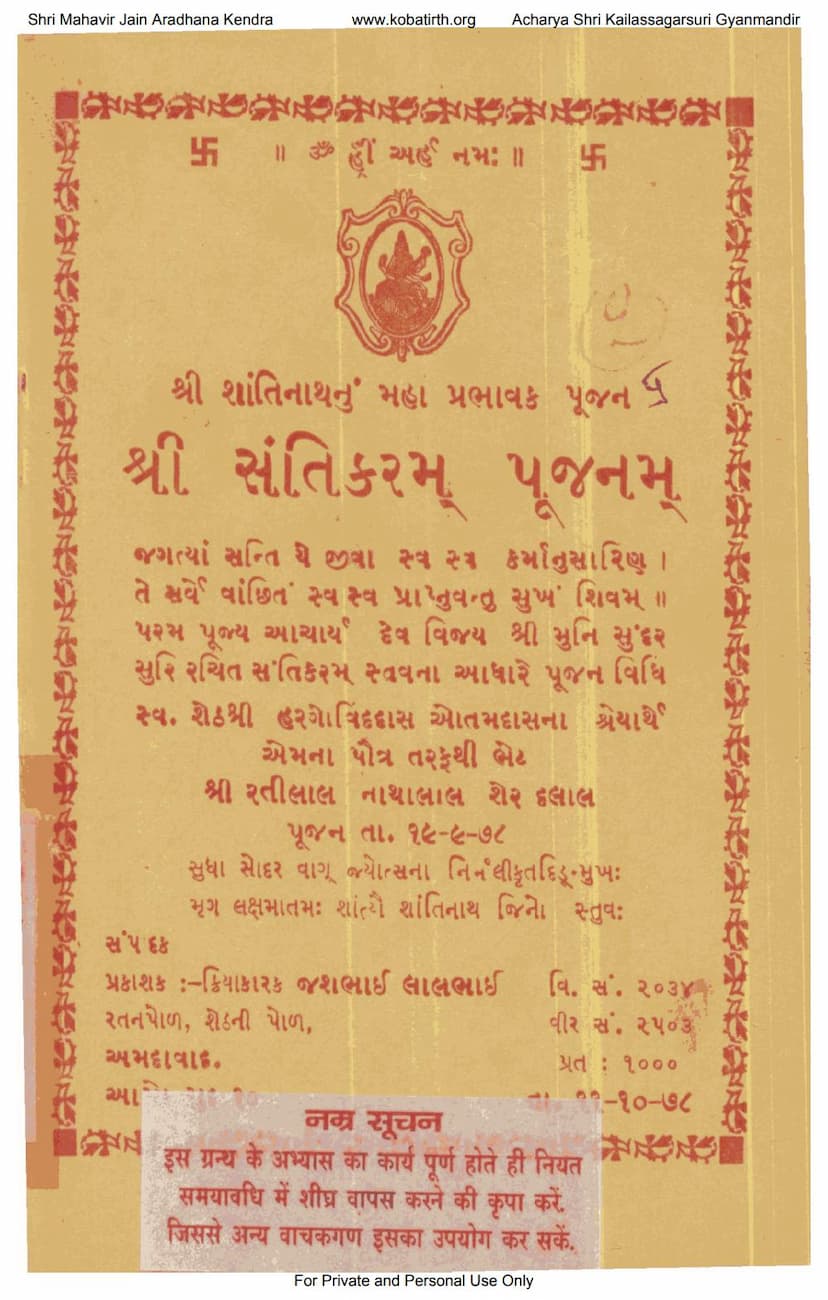 Shri Mahavir Jain Aradhana Kendra www.kobatirth.org Acharya Shri Kailassagarsuri Gyanmandir
卐 ॥ ૐ હ્રીં અર્હ નમઃ ॥ 卐
શ્રી શાંતિનાથનું મહા પ્રભાવક પૂજન
શ્રી સંતિકરમ્ પૂજનમ્
જગત્યાં સન્તિ યે જીવા સ્વ સ્વ કર્માનુસારિણ ।
તે સર્વે વાંછિતં સ્વ સ્વ પ્રાપ્નુવન્તુ સુખં શિવમ્ ॥
પરમ પૂજ્ય આચાર્ય દેવ વિજય શ્રી મુનિ સુંદર
સુરિ રચિત સંતિકરમ્ સ્તવના આધારે પૂજન વિધિ
સ્વ. શેઠશ્રી હરગોવિંદદાસ ઓતમદાસના શ્રેયાર્થે
એમના પૌત્ર તરફથી ભેટ
શ્રી રતીલાલ નાથાલાલ શેર દલાલ
પૂજન તા. ૧૯-૯-૭૮
સુધા સોદર વાગ્ જ્યોત્સના
મૃગ લક્ષમાતમઃ શાંત્યૈ શાંતિનાથ જિનો સ્તુવઃ
પ્રકાશક :-ક્રિયાકારક જશભાઈ લાલભાઈ વિ. સં. ૨૦૩૪
રતનપોળ, શેઠની પોળ, વીર સં. ૨૫૦૩
અમદાવાદ. પ્રત : ૧૦૦૦
-૧૦-૭૮
नम्र सूचन
इस ग्रन्थ के अभ्यास का कार्य पूर्ण होते ही नियत
समयावधि में शीघ्र वापस करने की कृपा करें.
जिससे अन्य वाचकगण इसका उपयोग कर सकें.
For Private and Personal Use Only